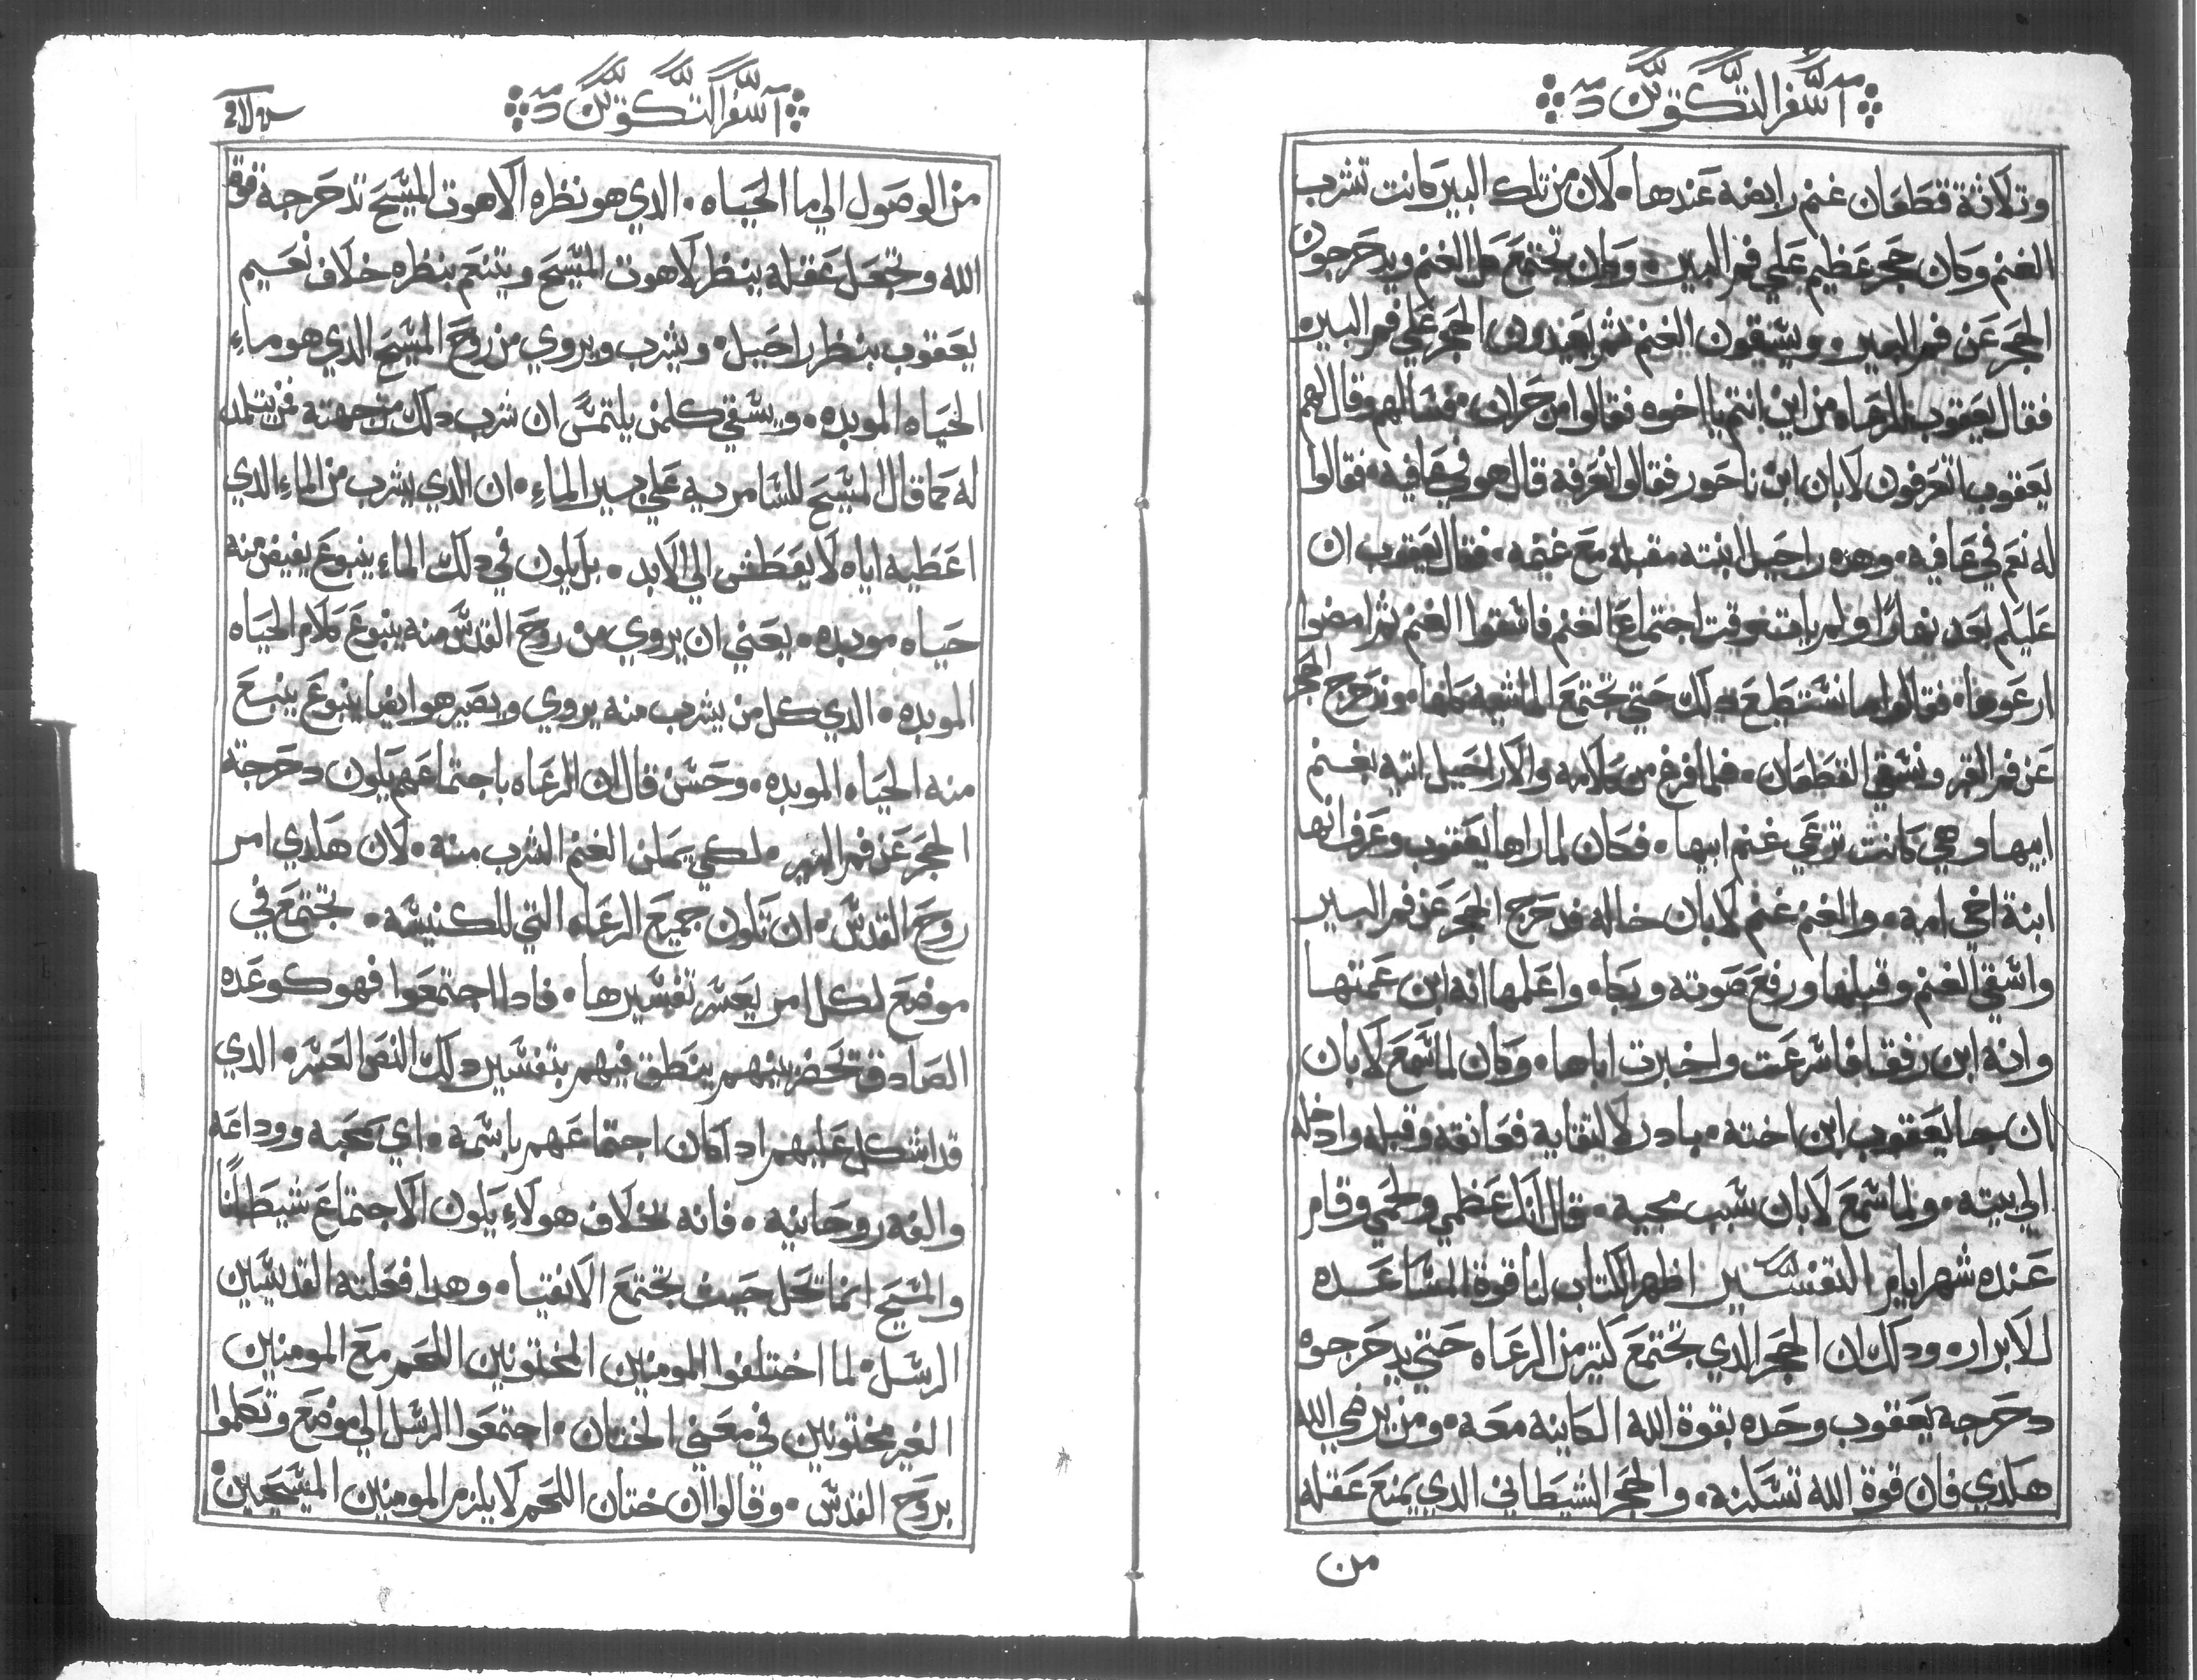 سفر التكوين
وتلاتة قطعان غنم رابضه عندها. لان من تلك البير كانت تشرب
الغنم وكان حجر عظيم علي فم البير. وكان تجتمع كل الغنم ويدحرجون
الحجر عن فم البير ويسقون الغنم تم يعيدون الحجر علي فم البير.
فقال يعقوب للرعاه من اين انتم يا اخوه فقالوا من حران. فسالهم وقال لهم
يعقوب اتعرفون لابان ابن ناحور فقالوا نعرفه قال هو في عافيه. فقالوا
له نعم في عافيه. وهده راحيل ابنته مقبله مع غنمه. فقال يعقوب ان
عليكم بعد نهارًا ولم يات وقت اجتماع الغنم فاسقوا الغنم تم امضوا
ارعوها. فقالوا ما نستطيع دلك حتي تجتمع الماشيه كلها. وندحرج الحجر
عن فم البير ونسقي القطعان. فلما فرغ من كلامه والا راحيل اتيه بغنم
ابيها وهي كانت ترعي غنم ابيها. فكان لما راها يعقوب وعرف انها
ابنة اخي امه. والغنم غنم لابان خاله فدحرج الحجر عن فم البير
واسقي الغنم وقبلها ورفع صوته وبكا. واعلمها انه ابن عمتها
وانه ابن رفقا فاسرعت واخبرت اباها. وكان لما سمع لابان
ان جا يعقوب ابن اخته. بادر لالتقايه فعانقه وقبله وادخله
الي بيته. ولما سمع لابان سبب مجيه. قال انك عظمي ولحمي وقام
عنده شهر ايام التفسير اظهر الكتاب لنا قوة المساعده
للابرار. ودلك ان الحجر الدي تجتمع كتير من الرعاه حتي يدحرجوه
دحرجه يعقوب وحده بقوة الله الكاينه معه. ومن يرضي الله
هكدي فان قوة الله تسكنه. والحجر الشيطاني الدي يمنع عقله
من
سفر التكوين
من الوصول الي ما الحياه. الدي هو نظره لاهوت المسيح تدحرجه قوة
الله وتجعل عقله ينظر لاهوت المسيح ويتنعم بنظره خلاف نعيم
يعقوب بنظر راحيل. ويشرب ويروي من روح المسيح الدي هو ماء
الحياه الموبده. ويسقي كلمن يلتمس ان شرب دلك من جهته فمن يتلمد
له كما قال المسيح للسامريه علي بير الماء. ان الدي يشرب من الماء الدي
اعطيه اياه لا يعطش الي الابد. بل يكون في دلك الماء ينبوع يفيض منه
حياه موبده. يعني ان يروي من روح القدس منه ينبوع كلام الحياه
الموبده. الدي كل من يشرب منه يروي ويصير هو ايضا ينبوع ينبع
منه الحياه الموبده. وحسن قال ان الرعاه باجتماعهم يكون دحرجة
الحجر عن فم البير. لكي يمكن الغنم الشرب منه. لان هكدي امر
روح القدس. ان تكون جميع الرعاه التي للكنيسه. تجتمع في
موضع لكل امر يعسر تفسيرها. فادا اجتمعوا فهو كوعده
الصادق تحضر بينهم ينطق فيهم بتفسير دلك النص العسر. الدي
قد اشكل عليهم ادا كان اجتماعهم باسمه. اي بمحبه ووداعه
والفه روحانيه. فانه بخلاف هولاء يكون الاجتماع شيطانًا
والمسيح انما تحل حيث تجتمع الاتقيا. وهدا فعلته القديسين
الرسل. لما اختلفوا المومنين المختونين اللحم مع المومنين
الغير مختونين في معني الختان. اجتمعوا الرسل الي موضع وتكلموا
بروح القدس. وقالوا ان ختان اللحم لا يلزم المومنين المسيحيين